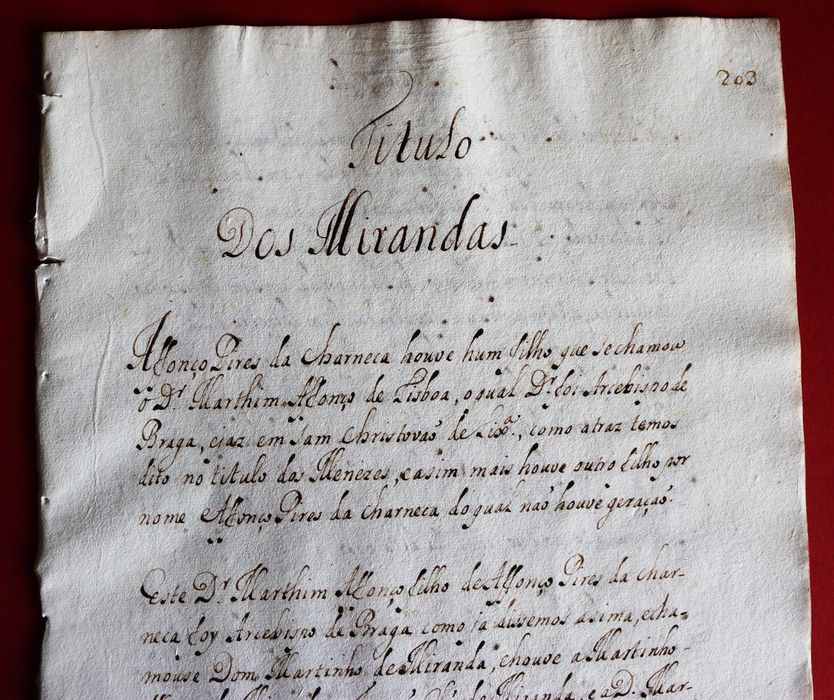 203
Titulo
Dos Mirandas
Affonço Pires da Charneca houve hum filho que se chamou
o D.r Marthim Affonço de Lisboa, o qual D.r foi Arcebispo de
Braga, e jaz em Sam Christovaõ de Lix.ª, como atraz temos
dito no titulo dos Menezes, e asim mais houve outro filho por
nome Affonço Pires da Charneca do qual naõ houve geraçaõ.
Este D.r Marthim Affonço filho de Affonço Pires da Char-
neca foy Arcebispo de Braga como já dissemos asima, e cha=
mouse Dom Martinho de Miranda, e houve a Martinho
de Miranda, e a D. Mar-